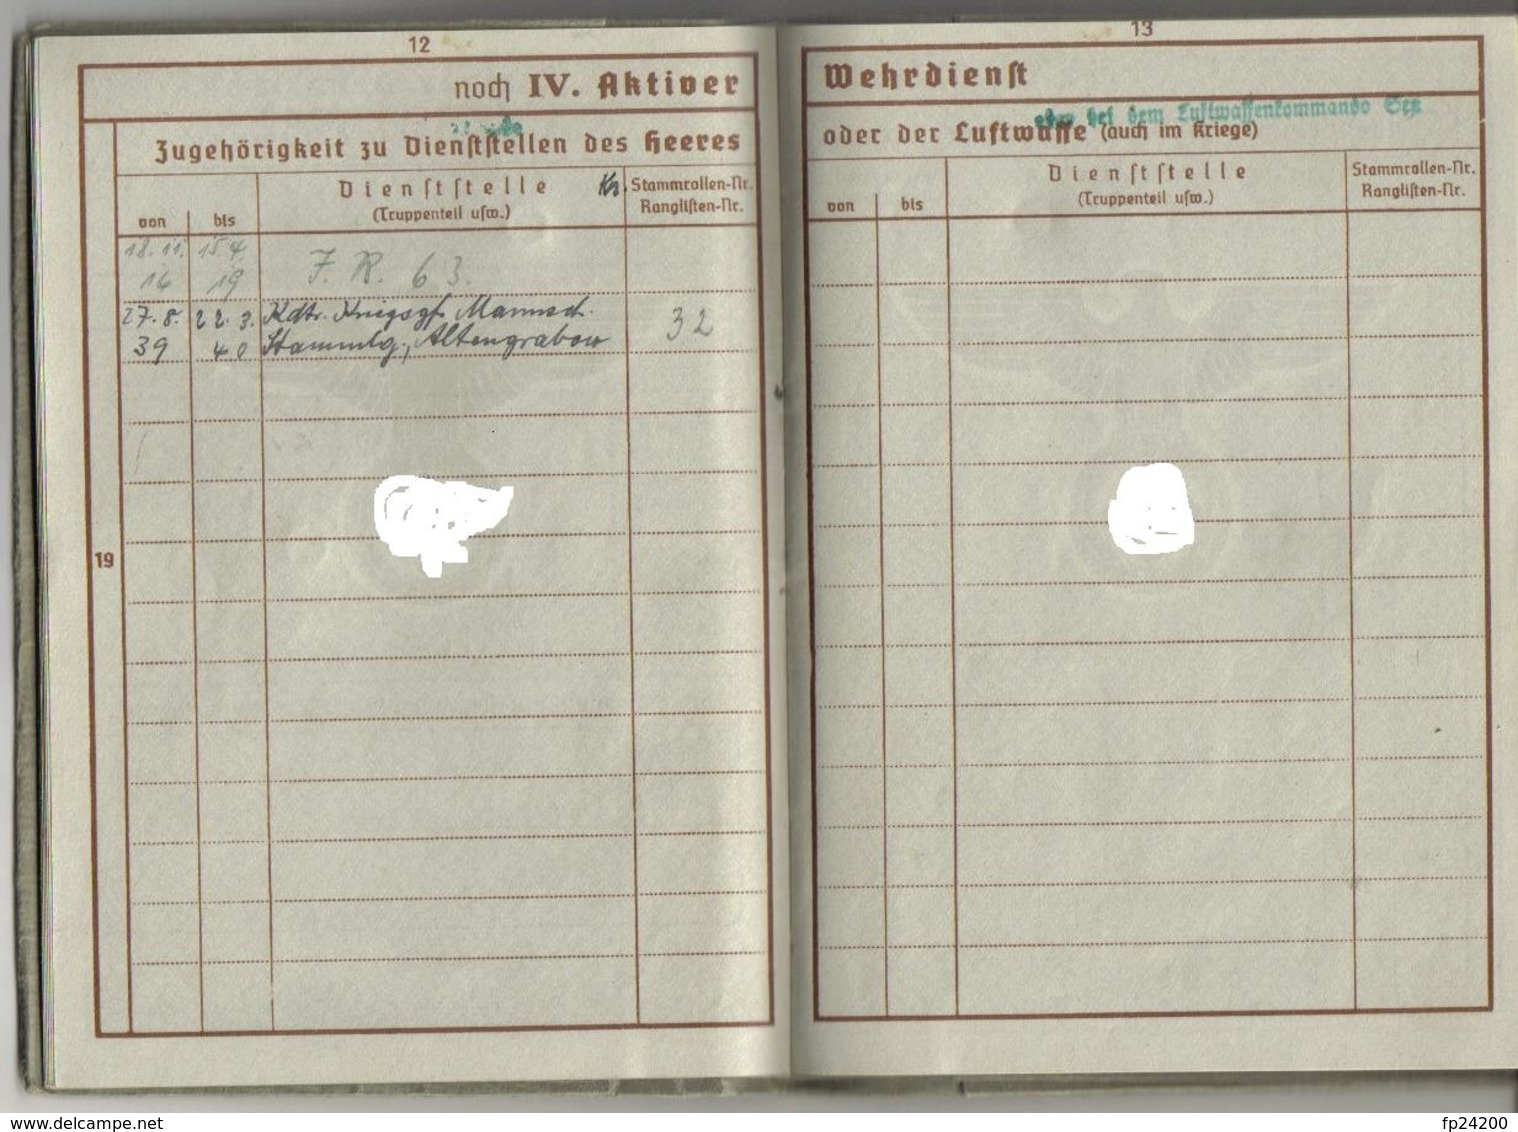 12
noch IV. Aktiver
Zugehörigkeit zu Dienststellen des Heeres
von
bis
Dienststelle
(Truppenteil usw.)
Kr.
Stammrollen-Nr.
Ranglisten-Nr.
18.11. 15.4.
16 19 J. R. 63.
27.8. 22.3. Kdtr. Kriegsgf. Mannsch.
39 40 Stammlg., Altengrabow
32
19
13
Wehrdienst
bei dem Luftwaffenkommando See
oder der Luftwaffe (auch im Kriege)
von
bis
Dienststelle
(Truppenteil usw.)
Stammrollen-Nr.
Ranglisten-Nr.
www.delcampe.net
fp24200